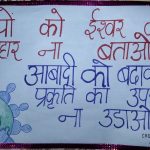 को ईश्वर
हार ना बताओ
आबादी को बढाक
प्रकृति का उप
ना उडाओ